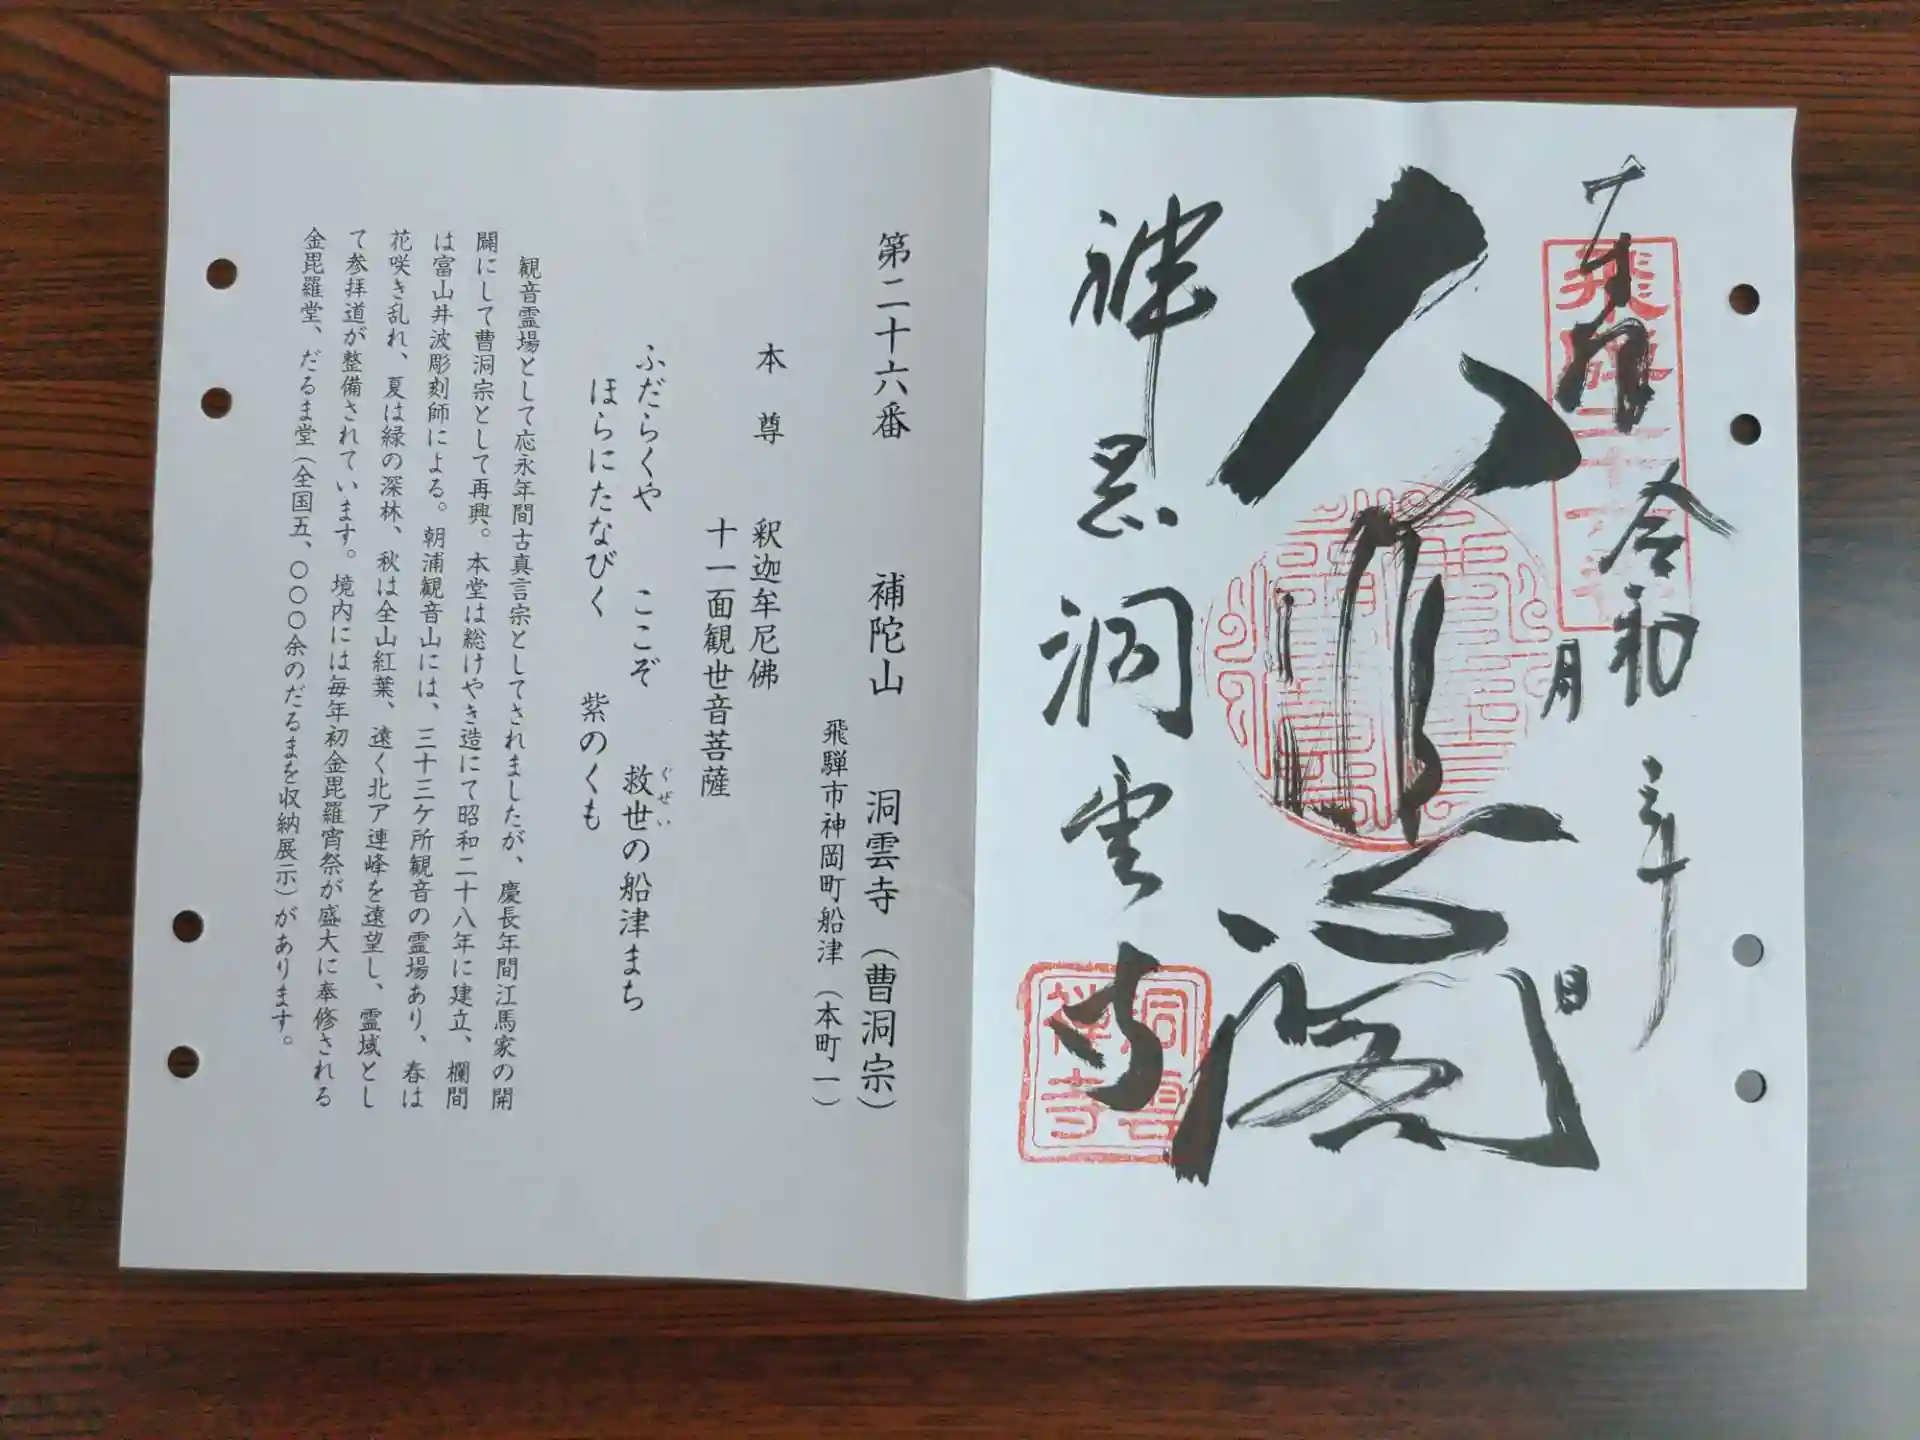 奉拝
令和三年
月
日
飛騨二十六番
大悲閣
神岡洞雲寺
洞雲
禅寺
第二十六番　補陀山　洞雲寺（曹洞宗）
飛騨市神岡町船津（本町一）
本尊　釈迦牟尼佛
十一面観世音菩薩
ふだらくや　ここぞ　救世の船津まち
ぐぜい
ほらにたなびく　紫のくも
観音霊場として応永年間古真言宗としてされましたが、慶長年間江馬家の開
闢にして曹洞宗として再興。本堂は総けやき造にて昭和二十八年に建立、欄間
は富山井波彫刻師による。朝浦観音山には、三十三ケ所観音の霊場あり、春は
花咲き乱れ、夏は緑の深林、秋は全山紅葉、遠く北ア連峰を遠望し、霊域とし
て参拝道が整備されています。境内には毎年初金毘羅宵祭が盛大に奉修される
金毘羅堂、だるま堂（全国五、〇〇〇余のだるまを収納展示）があります。